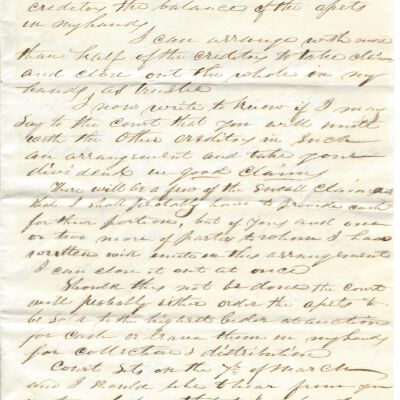 creditors the balance of the assets
in my hands
I can arrange with more
than half of the creditors to take claims
and close out the whole in my
hands as trustee
I now write to know if I may
say to the court that you will unite
with the other creditors in such
an arrangement and take your
dividend in good claims
There will be a few of the small claims
that I shall probably have to provide cash
for their portions, but if you and one
or two more of parties to whom I have
written will unite in this arrangement
I can close it out at once
Should this not be done the court
will probably either order the assets to
be sold to the highest bider at auction
for cash or leave them in my hands
for collection & distribution
Court sets on the 7th of March
and I should like to hear from you